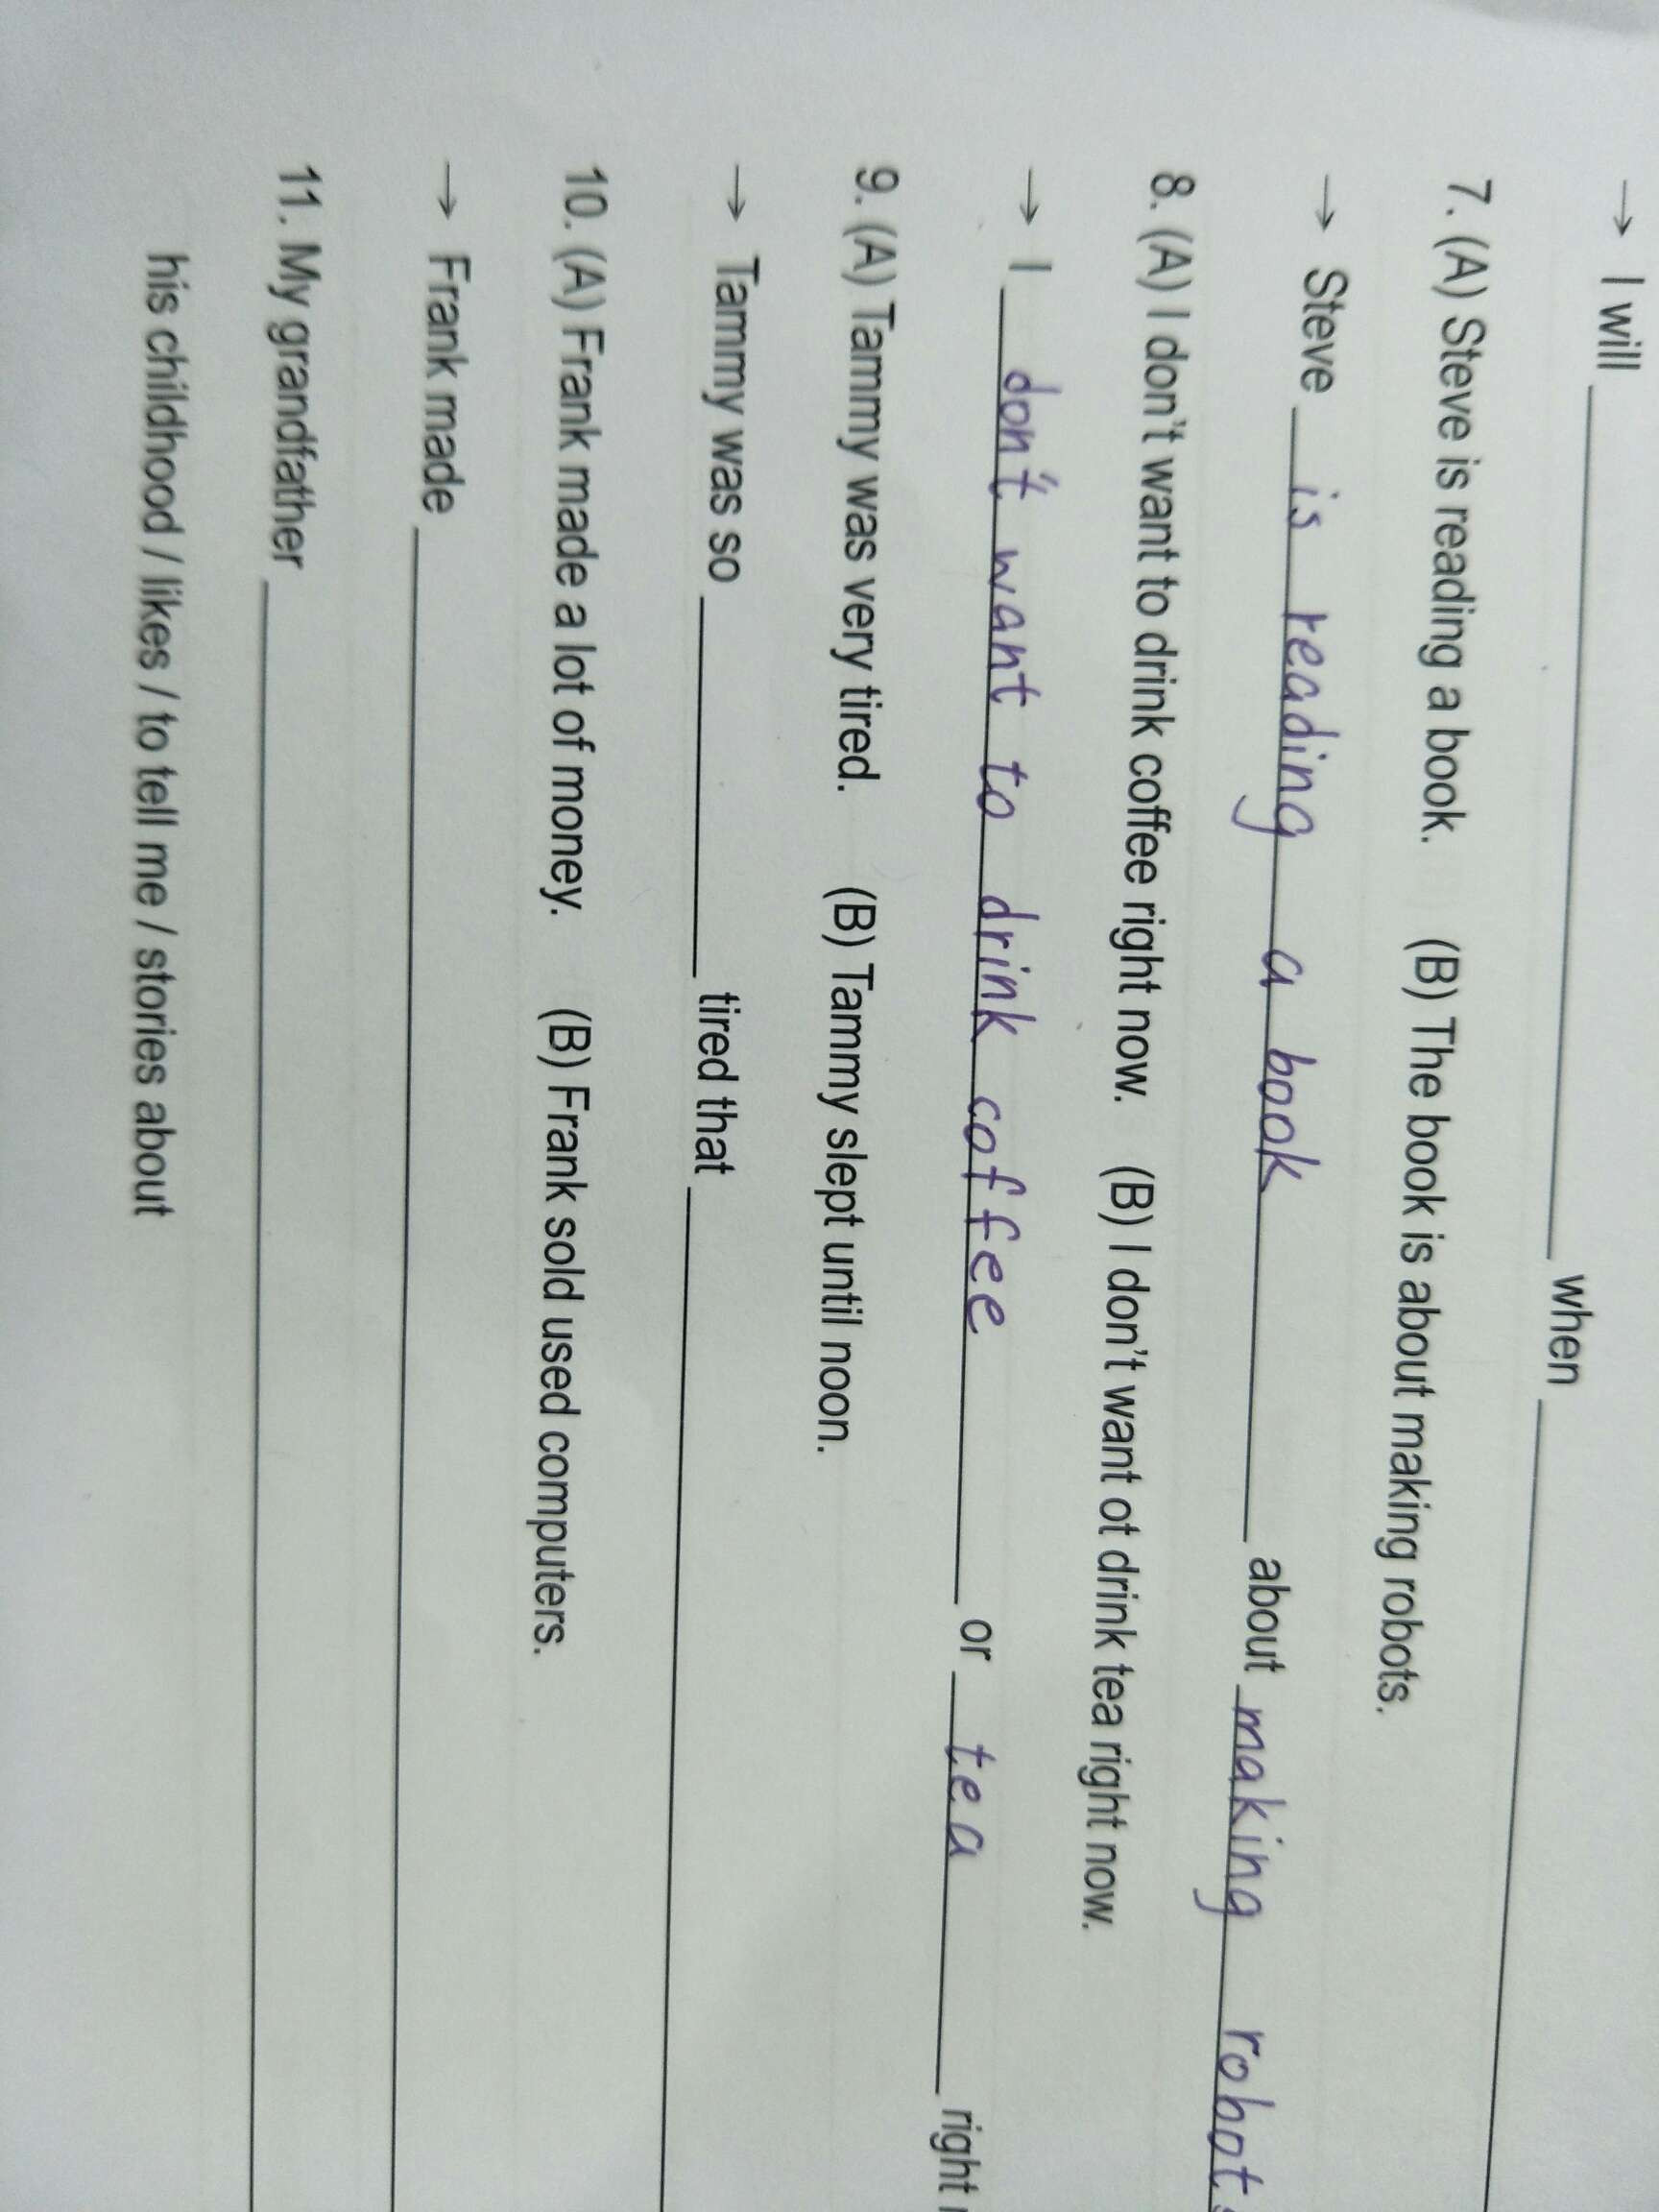 → I will ____ when ____
7. (A) Steve is reading a book. (B) The book is about making robots.
→ Steve is reading a book about making robots
8. (A) I don't want to drink coffee right now. (B) I don't want ot drink tea right now.
→ I don't want to drink coffee or tea right
9. (A) Tammy was very tired. (B) Tammy slept until noon.
→ Tammy was so ____ tired that ____
10. (A) Frank made a lot of money. (B) Frank sold used computers.
→ Frank made ____
11. My grandfather ____
his childhood / likes / to tell me / stories about